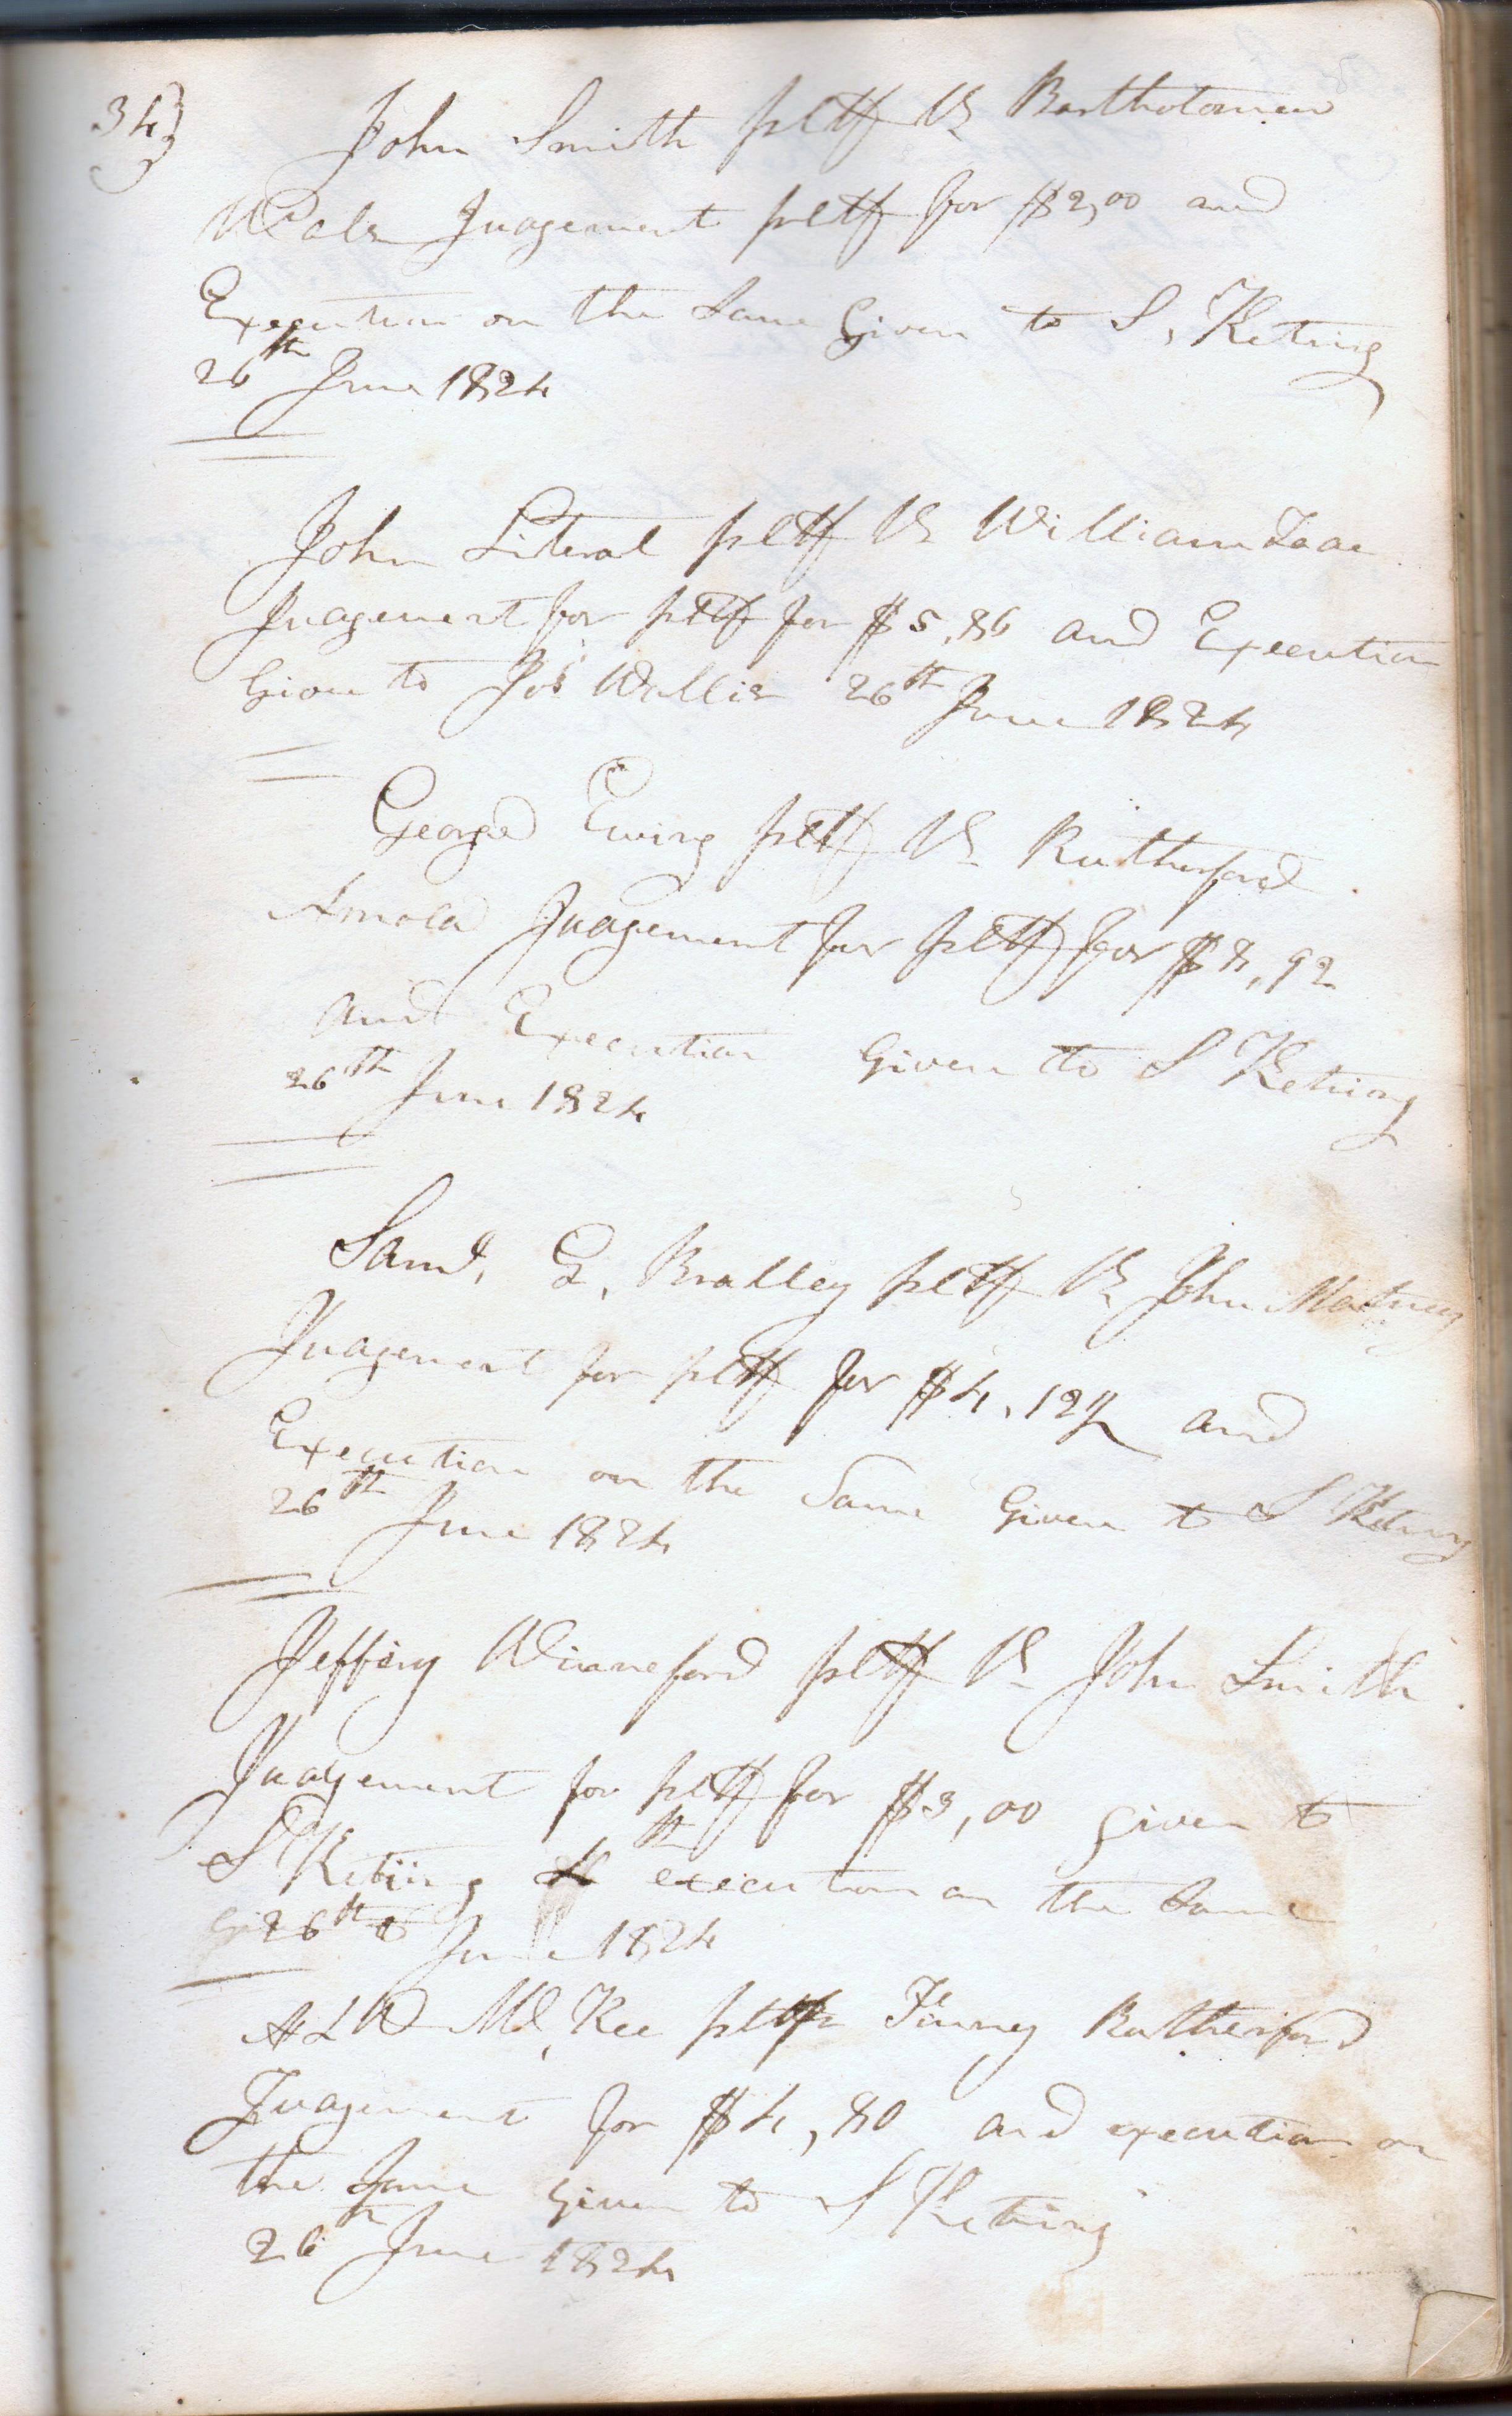 34
John Smith pltff Vs Bartholomew
Judgement pltff for $2,00 and
Execution on the Same Given to S, Keting
26th June 1824
John Literal pltff Vs William
Judgement for pltff for $5,86 and Execution
Given to Jos Wallis 26th June 1824
George Ewing pltff Vs Rutherford
Arnold Judgement for pltff for $8,92
and Execution Given to S Keting
26th June 1824
Saml, G, Bradley pltff Vs John
Judgement for pltff for $4,12½ and
Execution on the Same Given to S Keting
26th June 1824
Jeffery pltff Vs John Smith
Judgement for pltff for $3,00 given to
S Keting execution on the Same
26th June 1824
Mc, Kee pltff Rutherford
Judgement for $4,80 and execution on
the Same Given to S Keting
26th June 1824